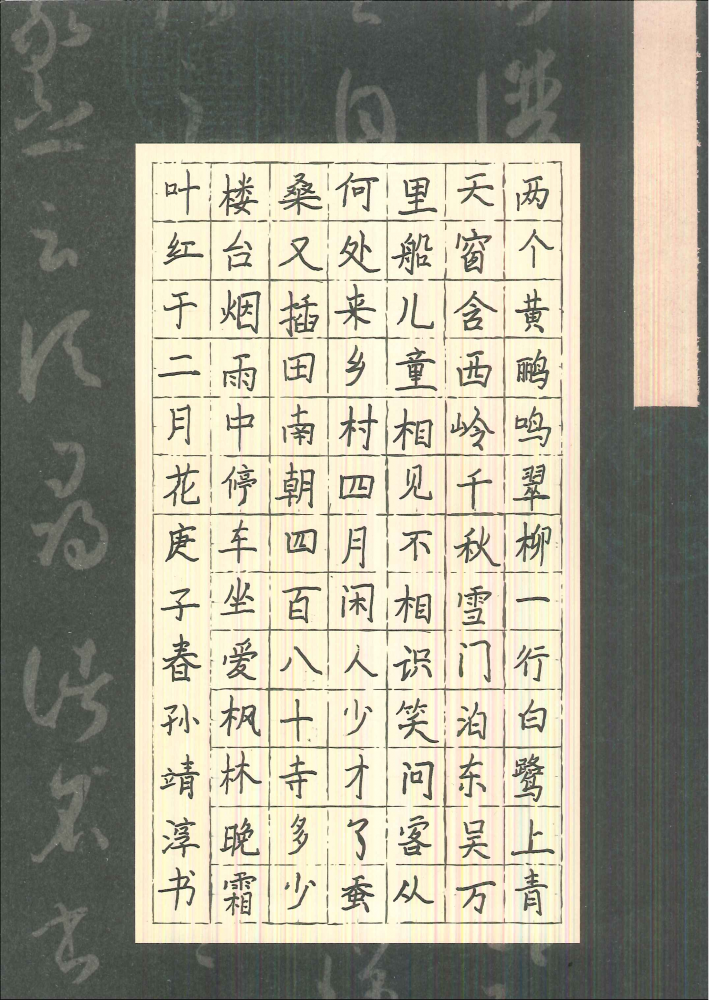 两个黄鹂鸣翠柳一行白鹭上青
天窗含西岭千秋雪门泊东吴万
里船儿童相见不相识笑问客从
何处来乡村四月闲人少才了蚕
桑又插田南朝四百八十寺多少
楼台烟雨中停车坐爱枫林晚霜
叶红于二月花庚子春孙靖淳书